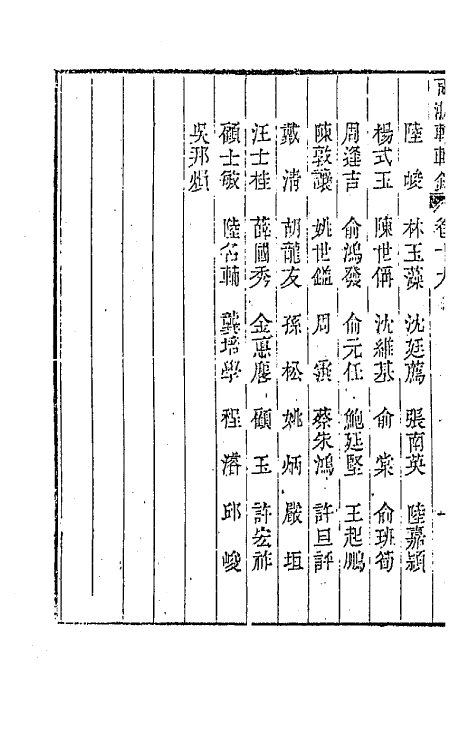 兩浙輶軒錄 卷十九
陸峻 林玉藻 沈廷薦 張南英 陸嘉穎
楊式玉 陳世偁 沈維基 俞棠 俞班筍
周逢吉 俞鴻發 俞元任 鮑廷堅 王起鵬
陳敦讓 姚世鑑 周 蔡朱鴻 許旦評
戴清 胡龍友 孫松 姚炳 嚴垣
汪士桂 薛國秀 金惠慶 顧玉 許宏祚
顧士敏 陸名輔 龔培學 程濬 邱峻
吳邦